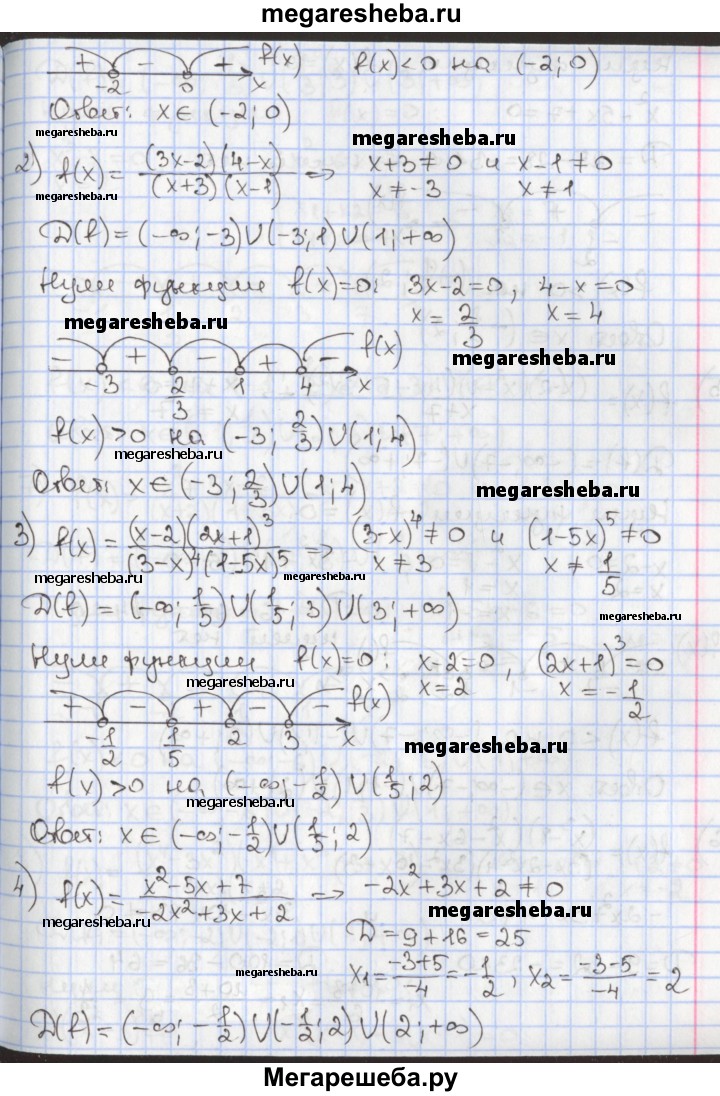 megaresheba.ru
+ - + f(x) f(x)<0 на (-2; 0)
-2 0 x
Ответ: x∈ (-2; 0)
megaresheba.ru megaresheba.ru
2) f(x) = (3x-2)(4-x) / (x+3)(x-1) => x+3≠0 и x-1≠0
megaresheba.ru x≠-3 x≠1
D(f) = (-∞; -3)∪(-3; 1)∪(1; +∞)
Нули функции f(x)=0: 3x-2=0, 4-x=0
x = 2/3 x=4
megaresheba.ru
- + - + - f(x) megaresheba.ru
-3 2/3 1 4 x
f(x)>0 на (-3; 2/3)∪(1; 4)
megaresheba.ru
Ответ: x∈(-3; 2/3)∪(1; 4) megaresheba.ru
3) f(x) = (x-2)(2x+1)³ / (3-x)⁴(1-5x)⁵ => (3-x)⁴≠0 и (1-5x)⁵≠0
megaresheba.ru megaresheba.ru x≠3 x≠ 1/5
D(f) = (-∞; 1/5)∪(1/5; 3)∪(3; +∞) megaresheba.ru
Нули функции f(x)=0: x-2=0, (2x+1)³=0
megaresheba.ru x=2 x = -1/2
+ - + - - f(x)
-1/2 1/5 2 3 x megaresheba.ru
f(x)>0 на (-∞; -1/2)∪(1/5; 2)
megaresheba.ru
Ответ: x∈ (-∞; -1/2)∪(1/5; 2)
megaresheba.ru
4) f(x) = x²-5x+7 / -2x²+3x+2 => -2x²+3x+2≠0
megaresheba.ru megaresheba.ru
D=9+16=25
megaresheba.ru x₁= -3+5/-4 = -1/2, x₂= -3-5/-4 = 2
D(f) = (-∞; -1/2)∪(-1/2; 2)∪(2; +∞)
Мегарешеба.ру